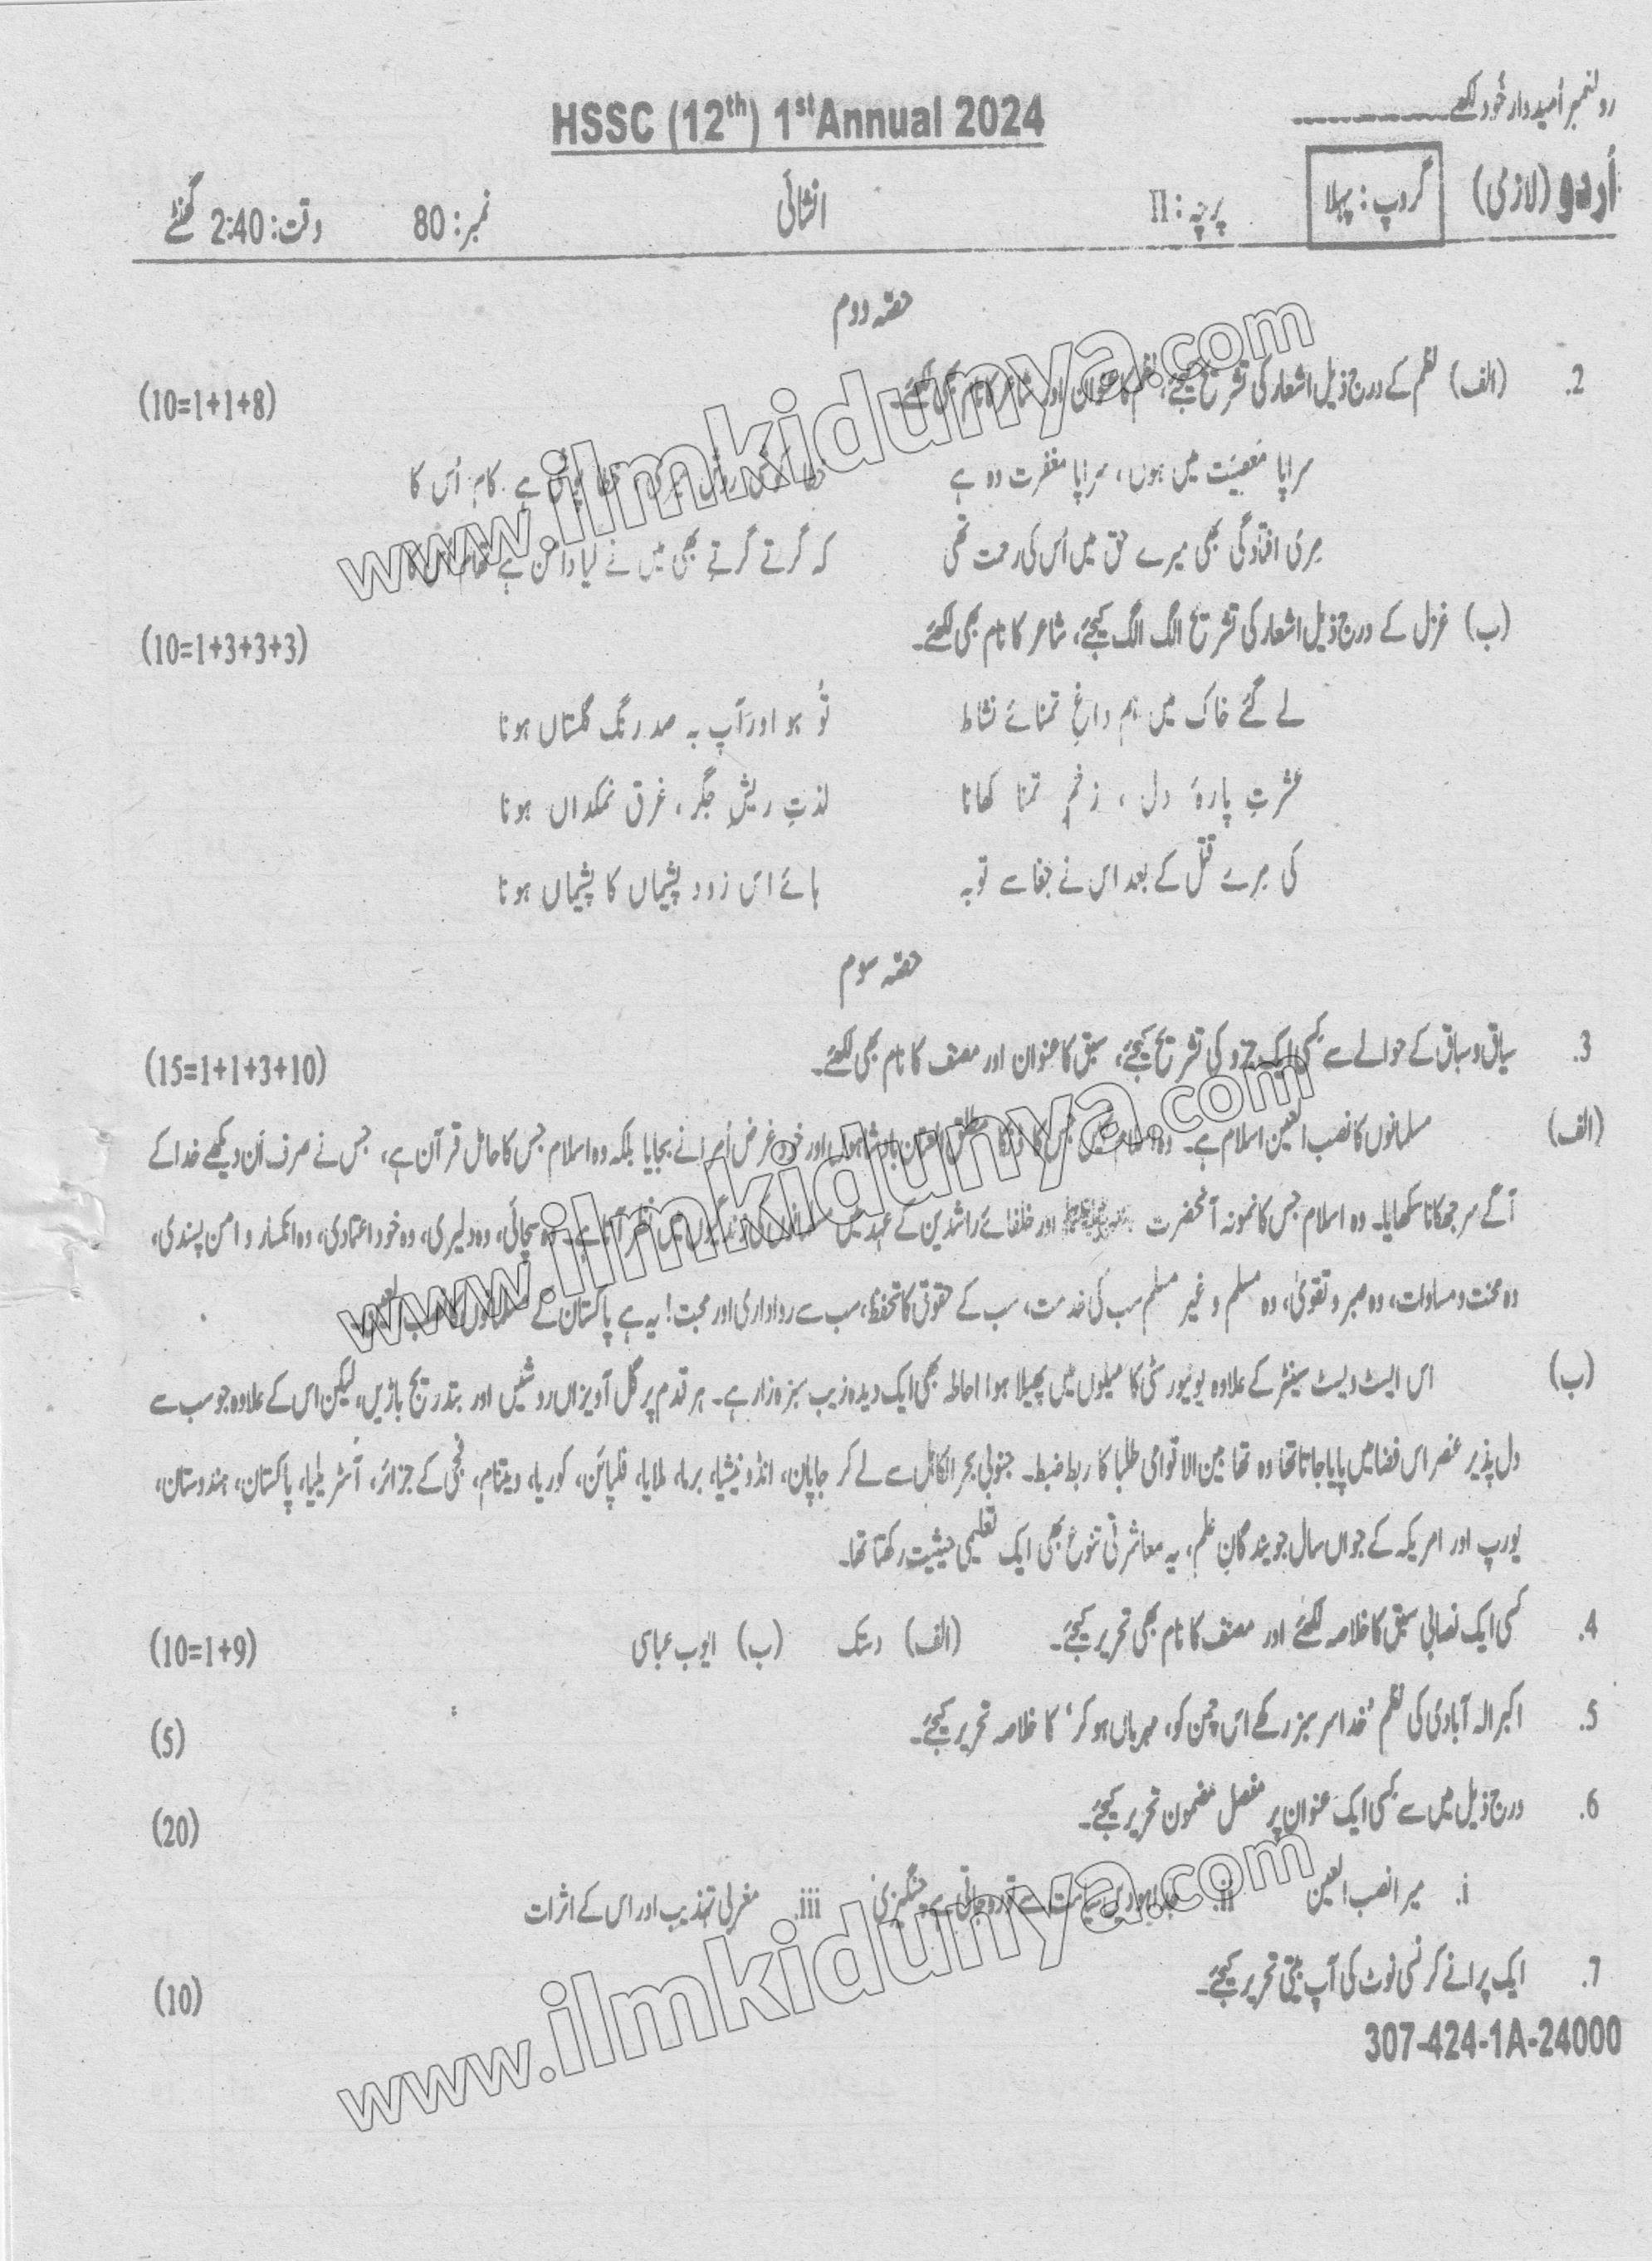 رولنمبر اُمیدوار خُود لکھے
HSSC (12th) 1st Annual 2024
اُردو (لازمی) گروپ: پہلا پرچہ: II انشائی نمبر: 80 وقت: 2:40 گھنٹے
حصّہ دوم
2. (الف) نظم کے درج ذیل اشعار کی تشریح کیجئے، نظم کا عنوان اور شاعر کا نام بھی لکھئے۔ (10=1+1+8)
سراپا معصِیَت میں ہوں، سراپا مغفرت وہ ہے ہے کام اُس کا
مری افتادگی بھی میرے حق میں اُس کی رحمت تھی کہ گرتے گرتے بھی میں نے لیا دامن ہے تھام
(ب) غزل کے درج ذیل اشعار کی تشریح الگ الگ کیجئے، شاعر کا نام بھی لکھئے۔ (10=1+3+3+3)
لے گئے خاک میں ہم داغِ تمنائے نشاط تُو ہو اور آپ بہ صد رنگ گلستاں ہونا
عشرتِ پارۂ دل، زخمِ تمنا کھانا لذتِ ریشِ جگر، غرق نمکداں ہونا
کی مرے قتل کے بعد اس نے جفا سے توبہ ہائے اس زود پشیماں کا پشیماں ہونا
حصّہ سوم
3. سیاق و سباق کے حوالے سے کسی ایک جزو کی تشریح کیجئے، سبق کا عنوان اور مصنف کا نام بھی لکھئے۔ (15=1+1+3+10)
(الف) مسلمانوں کا نصب العین اسلام ہے۔ وہ اسلام نہیں جس کا ڈنکا مطلق العنان بادشاہوں اور خود غرض اُمرا نے بجایا بلکہ وہ اسلام جس کا حامل قرآن ہے، جس نے صرف اَن دیکھے خدا کے
آگے سر جھکانا سکھایا۔ وہ اسلام جس کا نمونہ آنحضرت اور خلفائے راشدین کے عہد میں مسلمانوں کی زندگیوں میں نظر آتا ہے۔ وہ سچائی، وہ دلیری، وہ خود اعتمادی، وہ انکسار و امن پسندی،
وہ محنت و مساوات، وہ صبر و تقویٰ، وہ مسلم و غیر مسلم سب کی خدمت، سب کے حقوق کا تحفظ، سب سے رواداری اور محبت! یہ ہے پاکستان کے مسلمانوں کا نصب العین۔
(ب) اس ایسٹ ویسٹ سینٹر کے علاوہ یونیورسٹی کا میلوں میں پھیلا ہوا احاطہ بھی ایک دیدہ زیب سبزہ زار ہے۔ ہر قدم پر گل آویزاں روشیں اور بتدریج باڑیں، لیکن اس کے علاوہ جو سب سے
دل پذیر عنصر اس فضا میں پایا جاتا تھا وہ تھا بین الاقوامی طلبا کا ربط ضبط۔ جنوبی بحر الکاہل سے لے کر جاپان، انڈونیشیا، برما، ملایا، فلپائن، کوریا، ویتنام، فجی کے جزائر، آسٹریلیا، پاکستان، ہندوستان،
یورپ اور امریکہ کے جواں سال جویندگانِ علم، یہ معاشرتی تنوع بھی ایک تعلیمی حیثیت رکھتا تھا۔
4. کسی ایک نصابی سبق کا خلاصہ لکھئے اور مصنف کا نام بھی تحریر کیجئے۔ (الف) دستک (ب) ایوب عباسی (10=1+9)
5. اکبر الہ آبادی کی نظم ’خدا سر سبز رکھے اس چمن کو، مہرباں ہو کر‘ کا خلاصہ تحریر کیجئے۔ (5)
6. درج ذیل میں سے کسی ایک عنوان پر مفصل مضمون تحریر کیجئے۔ (20)
i. میرا نصب العین ii. جدا ہو دیں سیاست سے تو رہ جاتی ہے چنگیزی iii. مغربی تہذیب اور اس کے اثرات
7. ایک پرانے کرنسی نوٹ کی آپ بیتی تحریر کیجئے۔ (10)
307-424-1A-24000
www.ilmkidunya.com
www.ilmkidunya.com
www.ilmkidunya.com